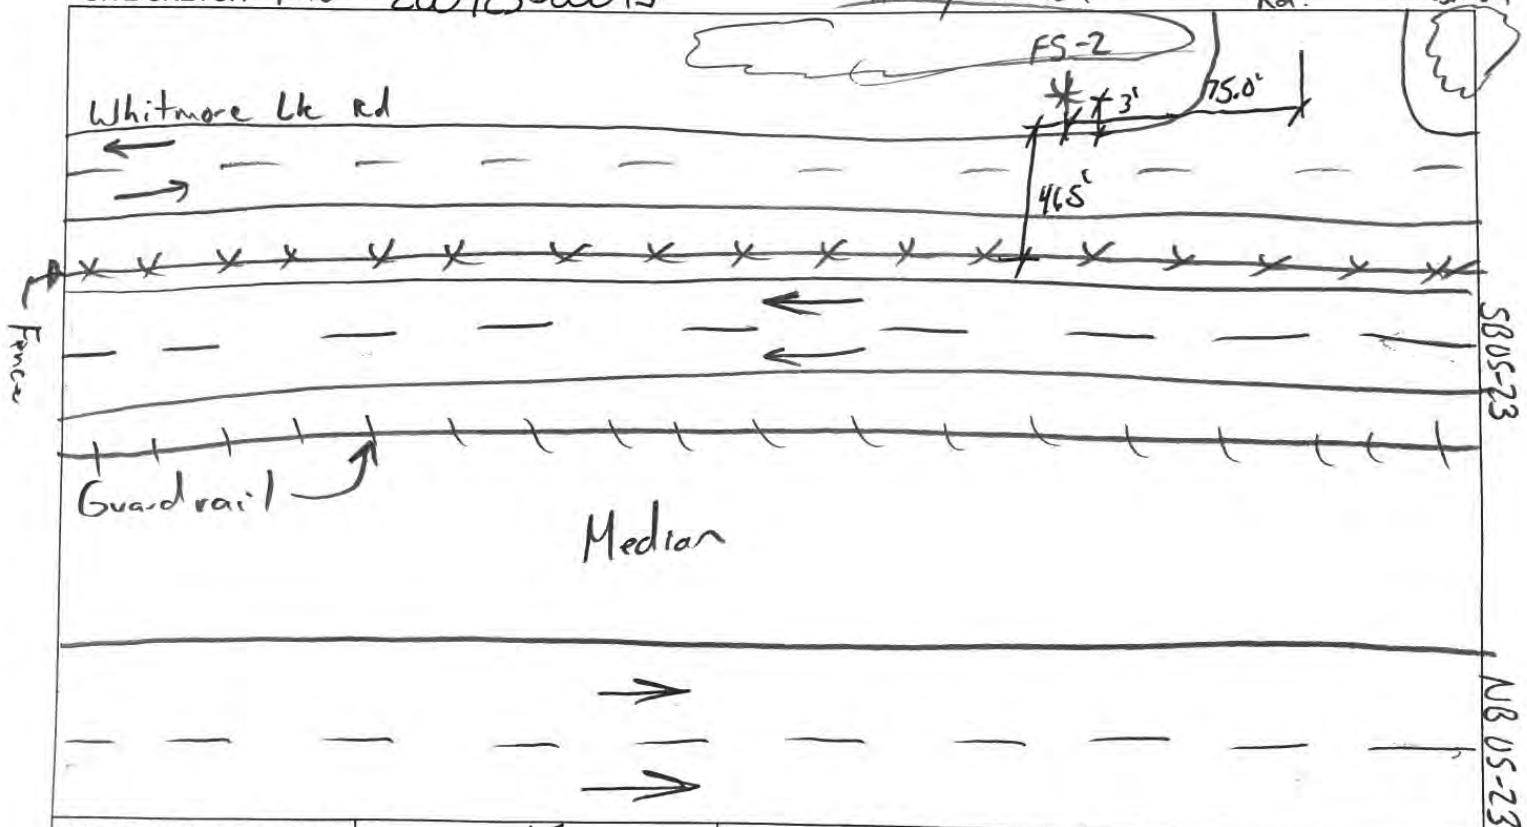 FS-2
Whitmore Lk Rd
3'
75.0'
46.5'
Fence
SB US-23
Guardrail
Median
NB US-23